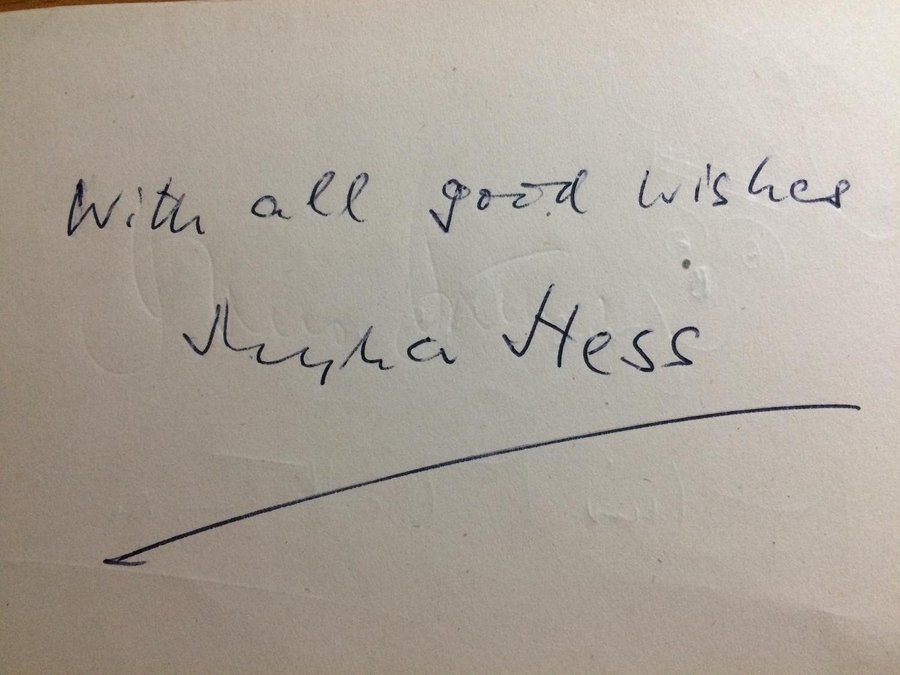 With all good wishes
Myra Hess